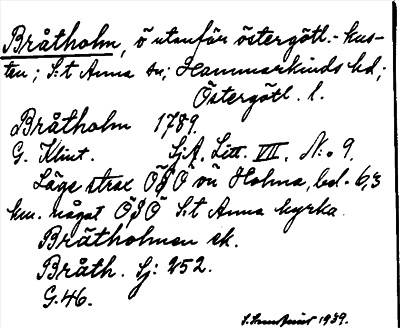 Bråtholm, ö utanför östergötl.-kus-
ten; S:t Anna sn; Hammarkinds hd;
Östergötl. l.
Bråtholm 1789.
G. Klint. SjA. Litt. VII. N:o 9.
Läge strax ÖSÖ om Holma, bel. 6,3
km. något ÖSÖ S:t Anna kyrka.
Bråtholmen sk.
Bråth. Sj: 252.
G.46.
1939.